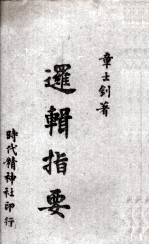 章士釗著
邏輯指要
時代精神社印行